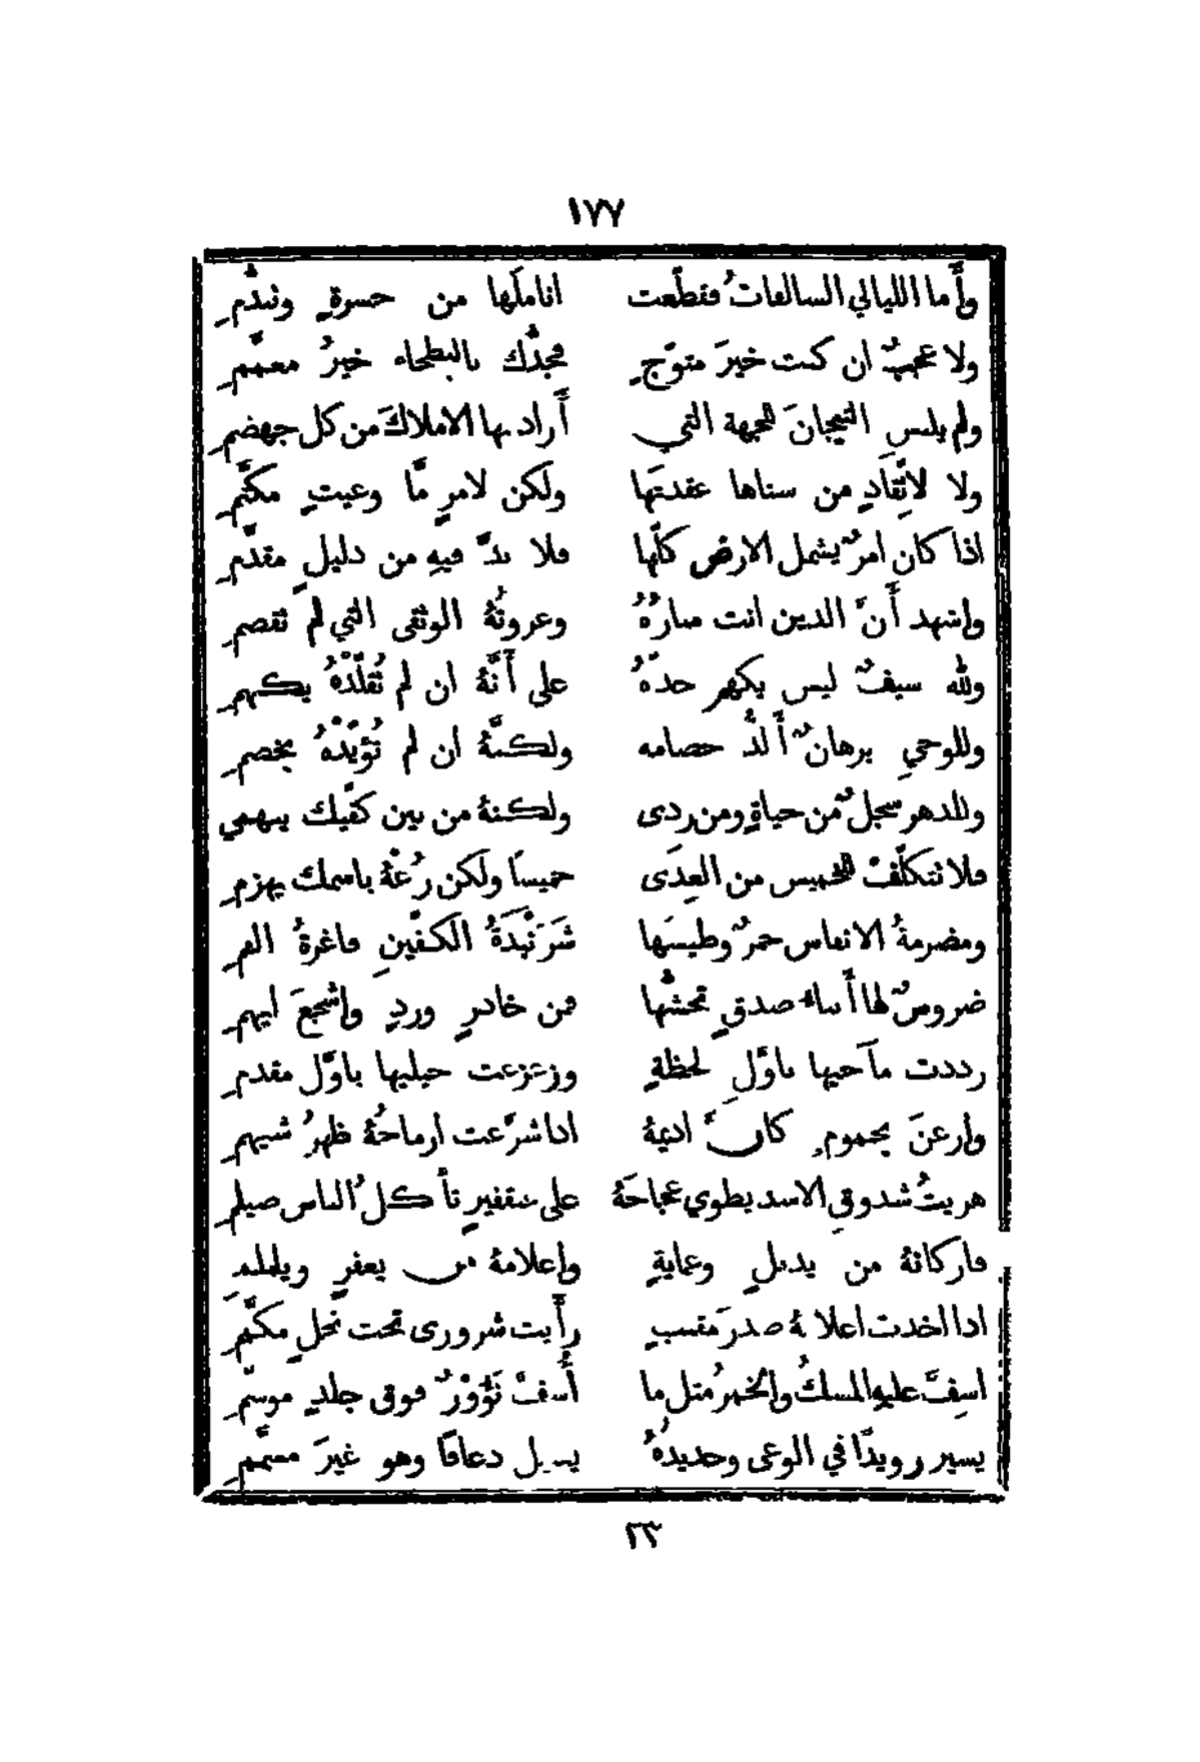 ١٧٧
وأَما الليالي السالفاتُ فقطّعت اناملَها من حسرةٍ وتندُّمِ
ولا عجبٌ ان كنت خيرَ متوّجٍ فجدُّك بالبطحاء خيرُ معمّمِ
ولم يلبسِ التيجانَ للجهة التي أَراد بها الاملاكَ من كل جهضمِ
ولا لاتِّقادٍ من سناها عقدتَها ولكن لامرٍ مّا وعيتٍ مكتّمِ
اذا كان امرٌ يشمل الارض كلّها فلا بدّ فيهِ من دليلٍ مقدّمِ
واشهد أَنّ الدين انت منارُهُ وعروتُهُ الوثقى التي لم تفصمِ
ولله سيفٌ ليس يكهم حدّهُ على أَنّهُ ان لم تُقلّدْهُ يكهمِ
وللوحيِ برهانٌ أَلدُّ خصامه ولكنّهُ ان لم تُؤيّدْهُ يخصمِ
وللدهر سجلٌ من حياةٍ ومن ردى ولكنهُ من بين كفّيك ينهمي
فلا تتكلّفْ للخميس من العِدَى خميسًا ولكن رُعْهُ باسمك يهزمِ
ومضرمةُ الانفاس جمرٌ وطيسَها شَرَنْبَدَةُ الكفّينِ فاغرةُ الفمِ
ضروسٌ لها أَبناء صدقٍ تحشّها فمن خادرٍ وردٍ واشجعَ ايهمِ
رددت مآحيها باوّلِ لحظةٍ وزعزعت جبليها باوّل مقدمِ
وارعنَ يحمومٍ كانّ اديمهُ اذا شرّعت ارماحُهُ ظهرُ شيهمِ
هريتُ شدوقِ الاسد يطوي عجاجَهُ على عنقفيرٍ تأكلُ الناس صيلمِ
فاركانهُ من يذبلٍ وعمايةٍ واعلامهُ من يعفرٍ ويلملمِ
اذا اخذت اعلاهُ صدرَ مقنبٍ رأَيت شرورى تحت نخلٍ مكمّمِ
اسِفّ عليهِ المسكُ والخمرُ مثل ما أُسفّ نَؤُوْرٌ فوق جلدٍ موسّمِ
يسير رويدًا في الوغى وحديدُهُ يسيل دعافًا وهو غيرَ مسمّمِ
٢٣